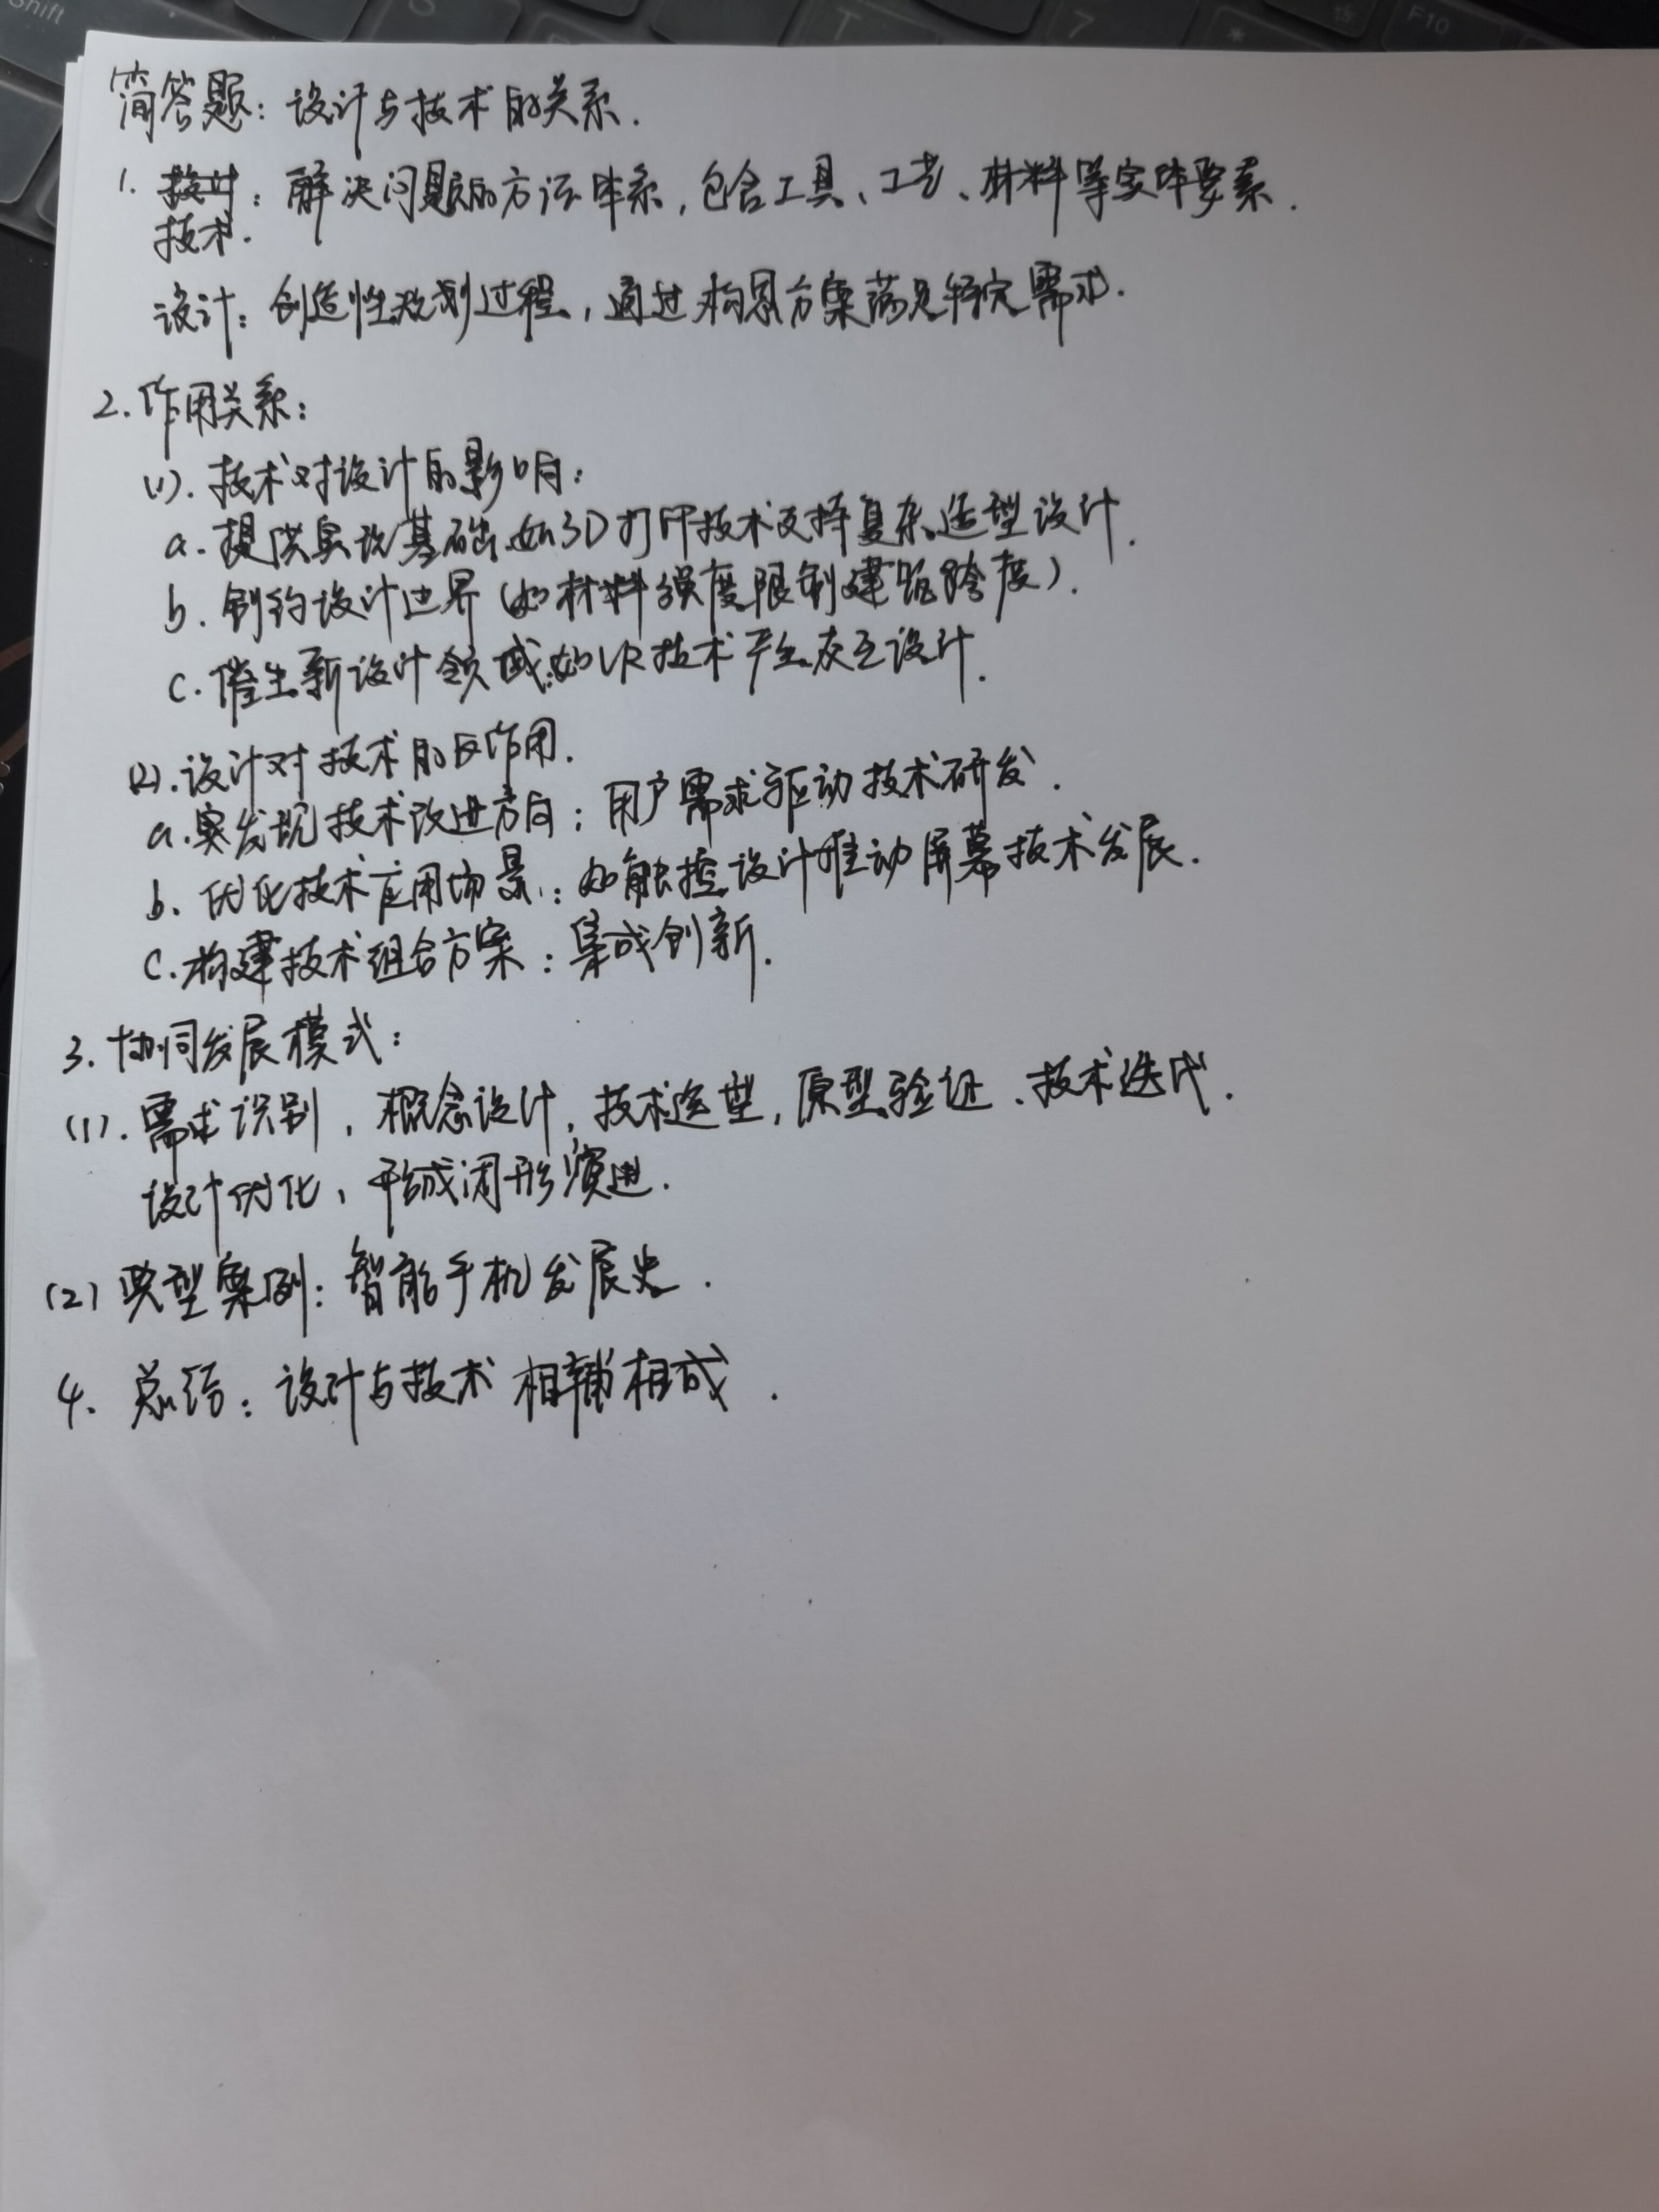 简答题：设计与技术的关系.
1. 技术：解决问题的方法体系，包含工具、工艺、材料等实体要素.
设计：创造性规划过程，通过构思方案满足特定需求.
2.作用关系：
(1).技术对设计的影响：
a.提供实现基础.如3D打印技术支持复杂造型设计.
b.制约设计边界(如材料强度限制建筑跨度).
c.催生新设计领域:如VR技术产生交互设计.
(2).设计对技术的反作用.
a.发现技术改进方向：用户需求驱动技术研发.
b.优化技术应用场景：如触控设计推动屏幕技术发展.
C.构建技术组合方案：集成创新.
3.协同发展模式：
(1).需求识别，概念设计，技术选型，原型验证、技术迭代.
设计优化，形成闭形演进.
(2)典型案例：智能手机发展史.
4.总结：设计与技术相辅相成.